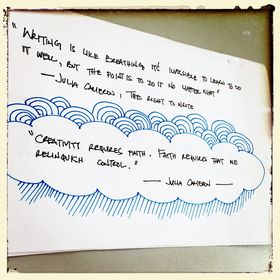 "WRITING IS LIKE BREATHING, IT'S POSSIBLE TO LEARN TO DO
IT WELL, BUT THE POINT IS TO DO IT NO MATTER WHAT"
— JULIA CAMERON, THE RIGHT TO WRITE
"CREATIVITY REQUIRES FAITH. FAITH REQUIRES THAT WE
RELINQUISH CONTROL."
— JULIA CAMERON —